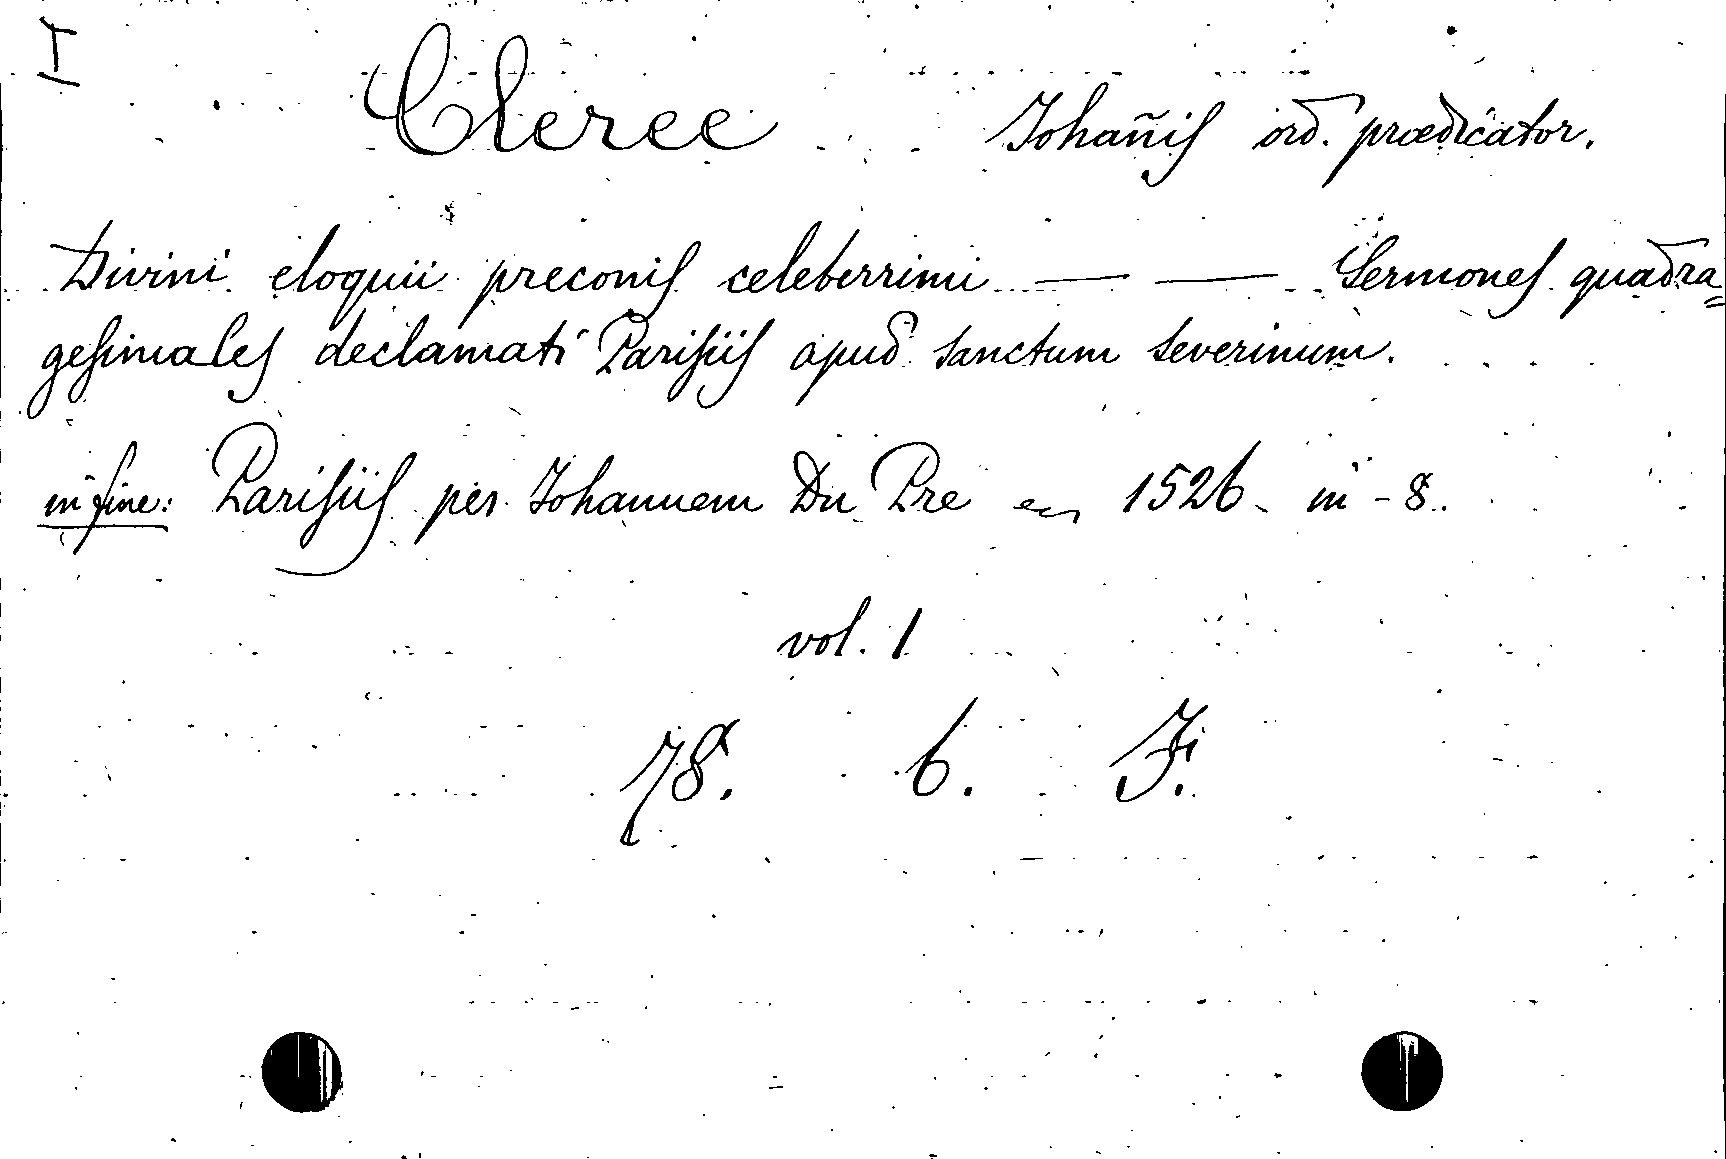 I
Cleree Johañis ord. prædicator.
Divini eloquii preconis celeberrimi — — Sermones quadra=
gesimales declamati Parisiis apud sanctum severinum.
in fine: Parisiis per Johannem Du Pre 1526 in-8.
vol. 1
78. 6. Fi.